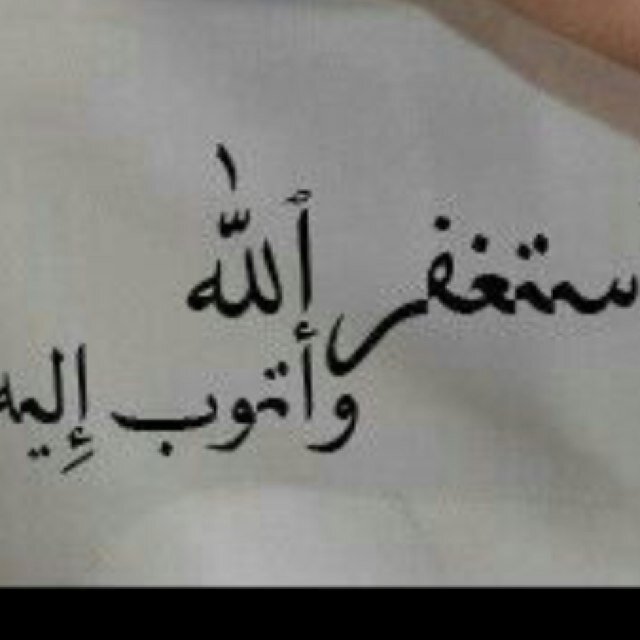 ستغفر ألله
وأتوب إليه